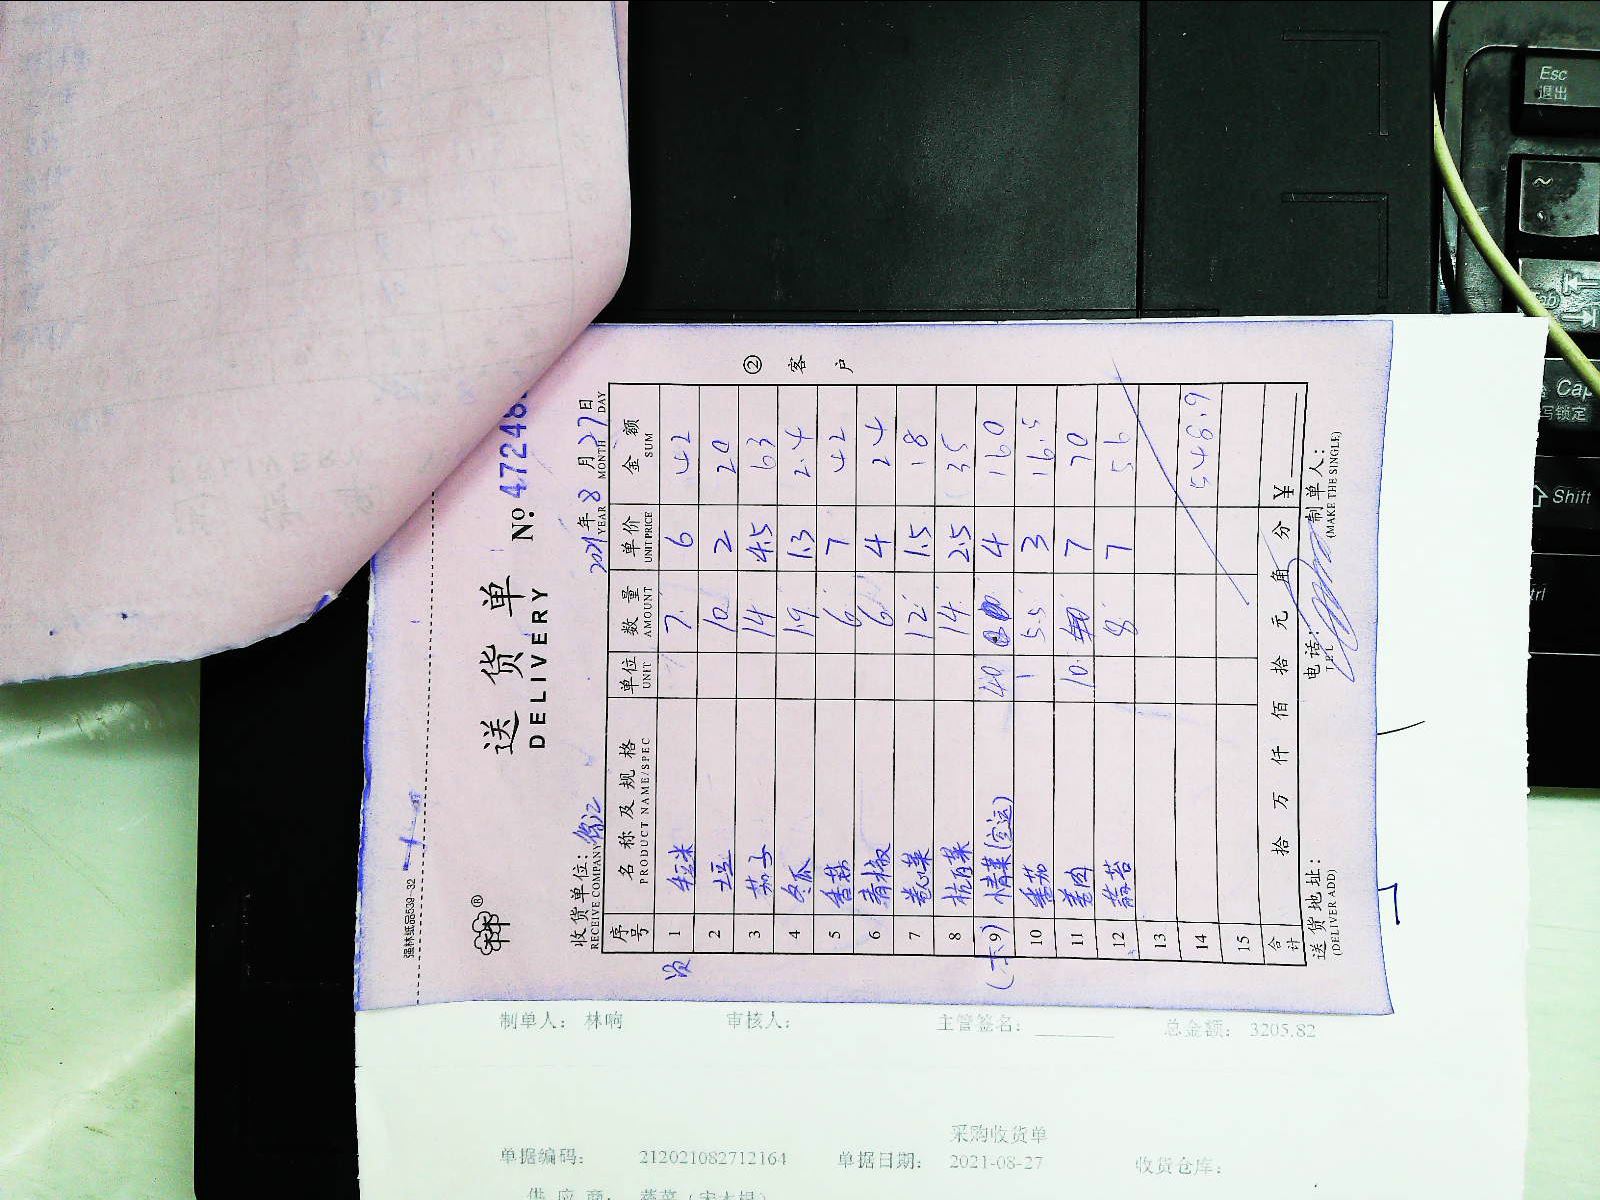 强林纸品539-32
送货单
DELIVERY
№ 47248
收货单位：
RECEIVE COMPANY
2021年8月27日
YEAR MONTH DAY
序号 名称及规格 单位 数量 单价 金额
PRODUCT NAME/SPEC UNIT AMOUNT UNIT PRICE SUM
1 7 6 42
2 土豆 10 2 20
3 茄子 14 4.5 63
4 冬瓜 19 1.3
5 香菇 6 7 42
6 青椒 6 4 24
7 卷心菜 12 1.5 18
8 杭白菜 14 2.5 35
9 40 4 160
10 番茄 5.5 3 16.5
11 10 7 70
12 蒜苔 8 7 56
13
14 548.9
15
合计 拾 万 仟 佰 拾 元 角 分 ¥
送货地址：
(DELIVER ADD)
电话：
TEL
制单人：
(MAKE THE SINGLE)
② 客户
制单人： 林响 审核人： 主管签名： 总金额： 3205.82
采购收货单
单据编码： 212021082712164 单据日期： 2021-08-27 收货仓库：
供应商：
Esc
退出
~
Tab
Cap
写锁定
Shift
trl